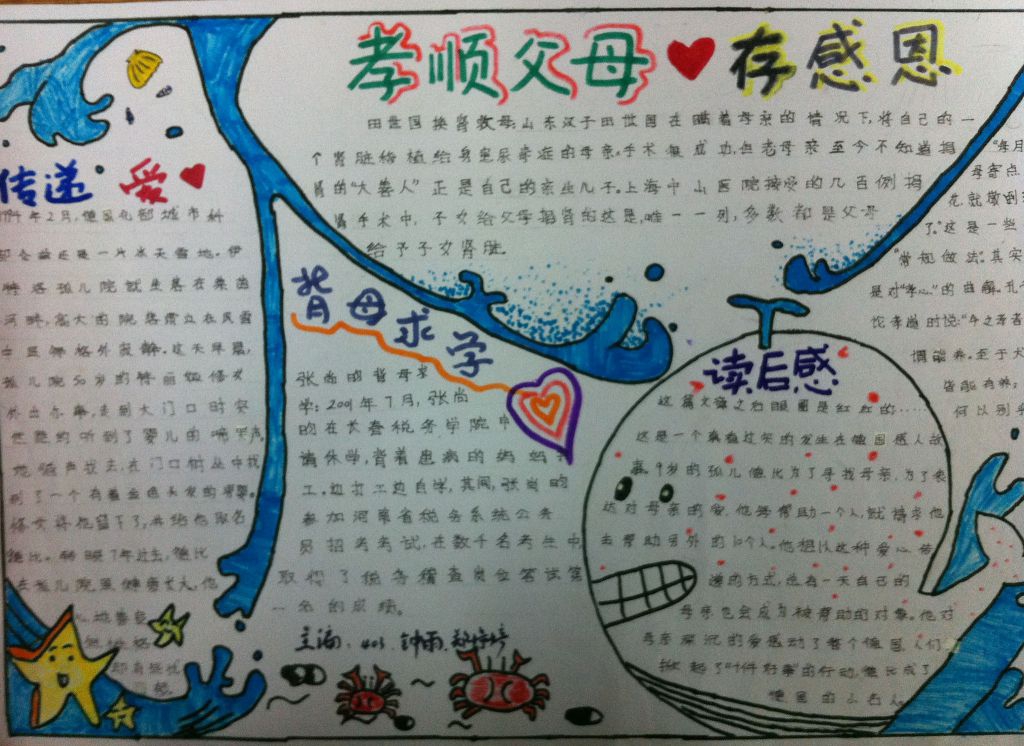 孝顺父母 存感恩
田世国换肾救母：山东汉子田世国在瞒着母亲的情况下，将自己的一
个肾脏移植给身患尿毒症的母亲。手术很成功，但老母亲至今不知道捐
肾的“大善人”正是自己的亲生儿子。上海中山医院接受的几百例捐
肾手术中，子女给父母捐肾的这是唯一一例，多数都是父母
给予子女肾脏。
传递 爱
1994年2月，德国北部城市科
还是一片冰天雪地。伊
特洛孤儿院就坐落在莱茵
河畔，高大的院落矗立在风雪
中显得格外寂静。这天早晨，
孤儿院50岁的特丽饭修女
外出办事，走到大门口时突
然隐约听到了婴儿的啼哭声。
她循声找去，在门口树丛中找
到了一个有着金色头发的男婴。
修女将他留下了，并给他取名
德比。转眼7年过去，德比
在孤儿院里健康长大，他
心地善良
背母求学
张尚昀背母求
学：2001年7月，张尚
昀在长春税务学院申
请休学，背着患病的妈妈打
工。边打工边自学，其间，张尚昀
参加河南省税务系统公务
员招考考试，在数千名考生中
取得了税务稽查岗位笔试第
一名的成绩。
主编：403 钟雨
读后感
这篇文章之后眼圈是红红的……
这是一个真真过头的发生在德国感人故
事。9岁的孤儿德比为了寻找母亲，为了表
达对母亲的爱，他每帮助一个人，就请求他
去帮助另外的10个人。他想以这种爱心传
递的方式，总有一天自己的
母亲也会成为被帮助的对象。他对
母亲深沉的爱感动了整个德国，人们
掀起了“1件好事”的行动。德比成了
德国的小名人。
“每月
母寄点
花就撒到
了。”这是一些
“常规做法”。其实
是对“孝心”的曲解。孔子
论孝道时说：“今之孝者
谓能养。至于犬
皆能有养；
何以别乎